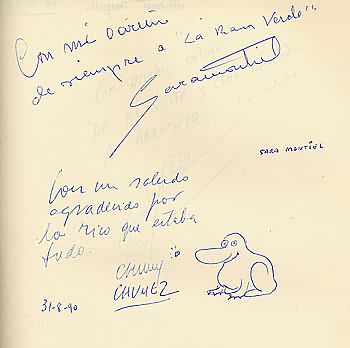 Con mi cariño
de siempre a "La Rana Verde"
Saramontiel
SARA MONTIEL
Con un saludo
agradecido por
lo rico que estaba
todo.
Chumy
CHUMEZ
31-8-90